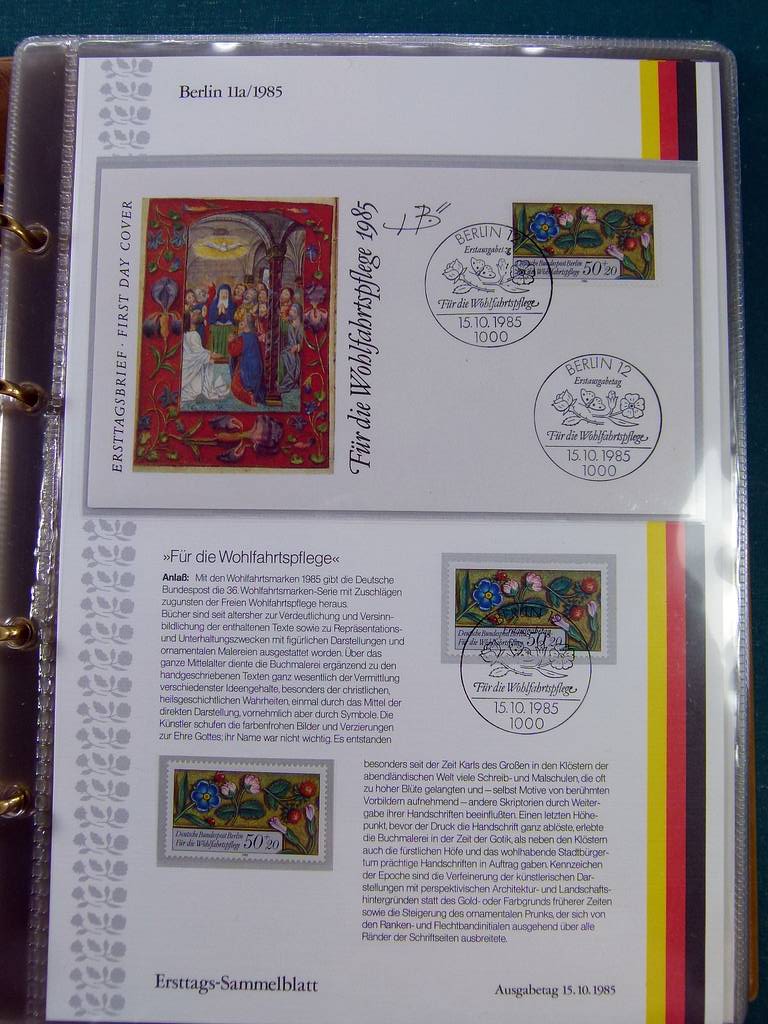 Berlin 11a/1985
ERSTTAGSBRIEF · FIRST DAY COVER
Für die Wohlfahrtspflege 1985
BERLIN 12
Erstausgabetag
Für die Wohlfahrtspflege
15.10.1985
1000
Deutsche Bundespost Berlin
Für die Wohlfahrtspflege 50+20
BERLIN 12
Erstausgabetag
Für die Wohlfahrtspflege
15.10.1985
1000
»Für die Wohlfahrtspflege«
Anlaß: Mit den Wohlfahrtsmarken 1985 gibt die Deutsche
Bundespost die 36. Wohlfahrtsmarken-Serie mit Zuschlägen
zugunsten der Freien Wohlfahrtspflege heraus.
Bücher sind seit altersher zur Verdeutlichung und Versinn-
bildlichung der enthaltenen Texte sowie zu Repräsentations-
und Unterhaltungszwecken mit figürlichen Darstellungen und
ornamentalen Malereien ausgestattet worden. Über das
ganze Mittelalter diente die Buchmalerei ergänzend zu den
handgeschriebenen Texten ganz wesentlich der Vermittlung
verschiedenster Ideengehalte, besonders der christlichen,
heilsgeschichtlichen Wahrheiten, einmal durch das Mittel der
direkten Darstellung, vornehmlich aber durch Symbole. Die
Künstler schufen die farbenfrohen Bilder und Verzierungen
zur Ehre Gottes; ihr Name war nicht wichtig. Es entstanden
Deutsche Bundespost Berlin
Für die Wohlfahrtspflege 50+20
BERLIN
Erstausgabetag
Für die Wohlfahrtspflege
15.10.1985
1000
Deutsche Bundespost Berlin
Für die Wohlfahrtspflege 50+20
besonders seit der Zeit Karls des Großen in den Klöstern der
abendländischen Welt viele Schreib- und Malschulen, die oft
zu hoher Blüte gelangten und – selbst Motive von berühmten
Vorbildern aufnehmend – andere Skriptorien durch Weiter-
gabe ihrer Handschriften beeinflußten. Einen letzten Höhe-
punkt, bevor der Druck die Handschrift ganz ablöste, erlebte
die Buchmalerei in der Zeit der Gotik, als neben den Klöstern
auch die fürstlichen Höfe und das wohlhabende Stadtbürger-
tum prächtige Handschriften in Auftrag gaben. Kennzeichen
der Epoche sind die Verfeinerung der künstlerischen Dar-
stellungen mit perspektivischen Architektur- und Landschafts-
hintergründen statt des Gold- oder Farbgrunds früherer Zeiten
sowie die Steigerung des ornamentalen Prunks, der sich von
den Ranken- und Flechtbandinitialen ausgehend über alle
Ränder der Schriftseiten ausbreitete.
Ersttags-Sammelblatt
Ausgabetag 15.10.1985